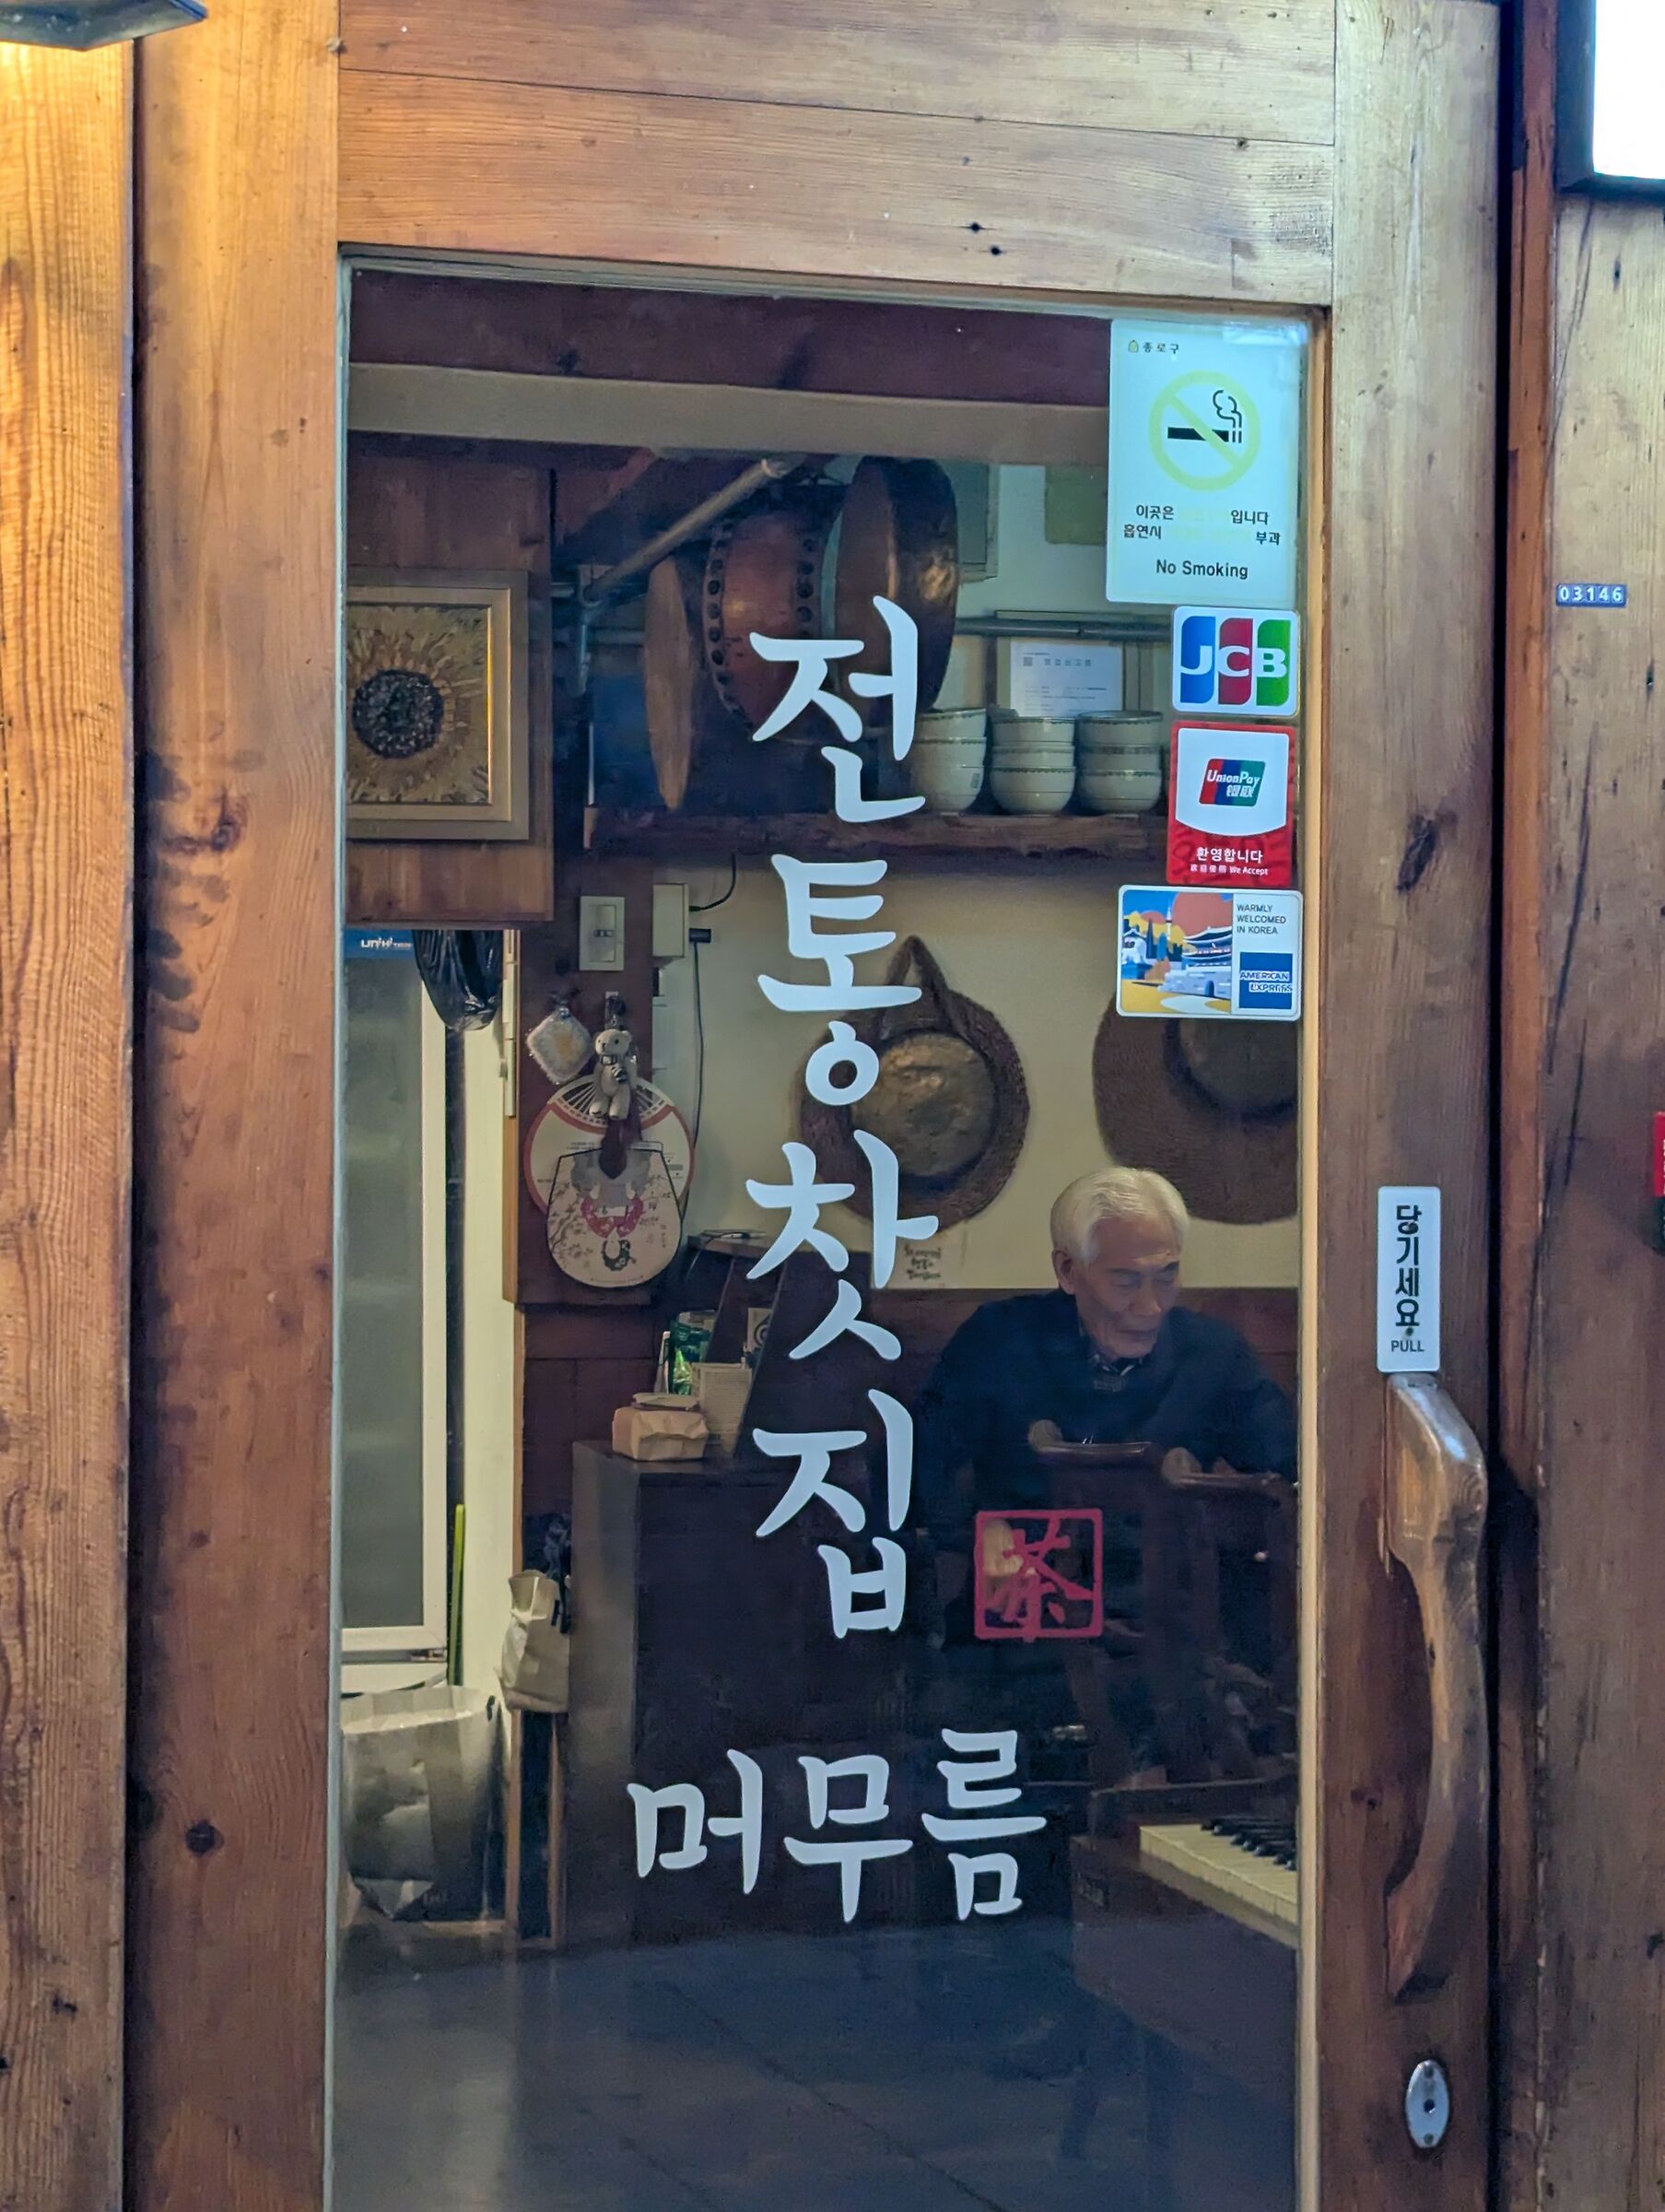 종로구
이곳은 입니다
흡연시 부과
No Smoking
03146
JCB
UnionPay
银联
환영합니다
We Accept
WARMLY
WELCOMED
IN KOREA
AMERICAN
EXPRESS
전통찻집
茶
머무름
당기세요
PULL